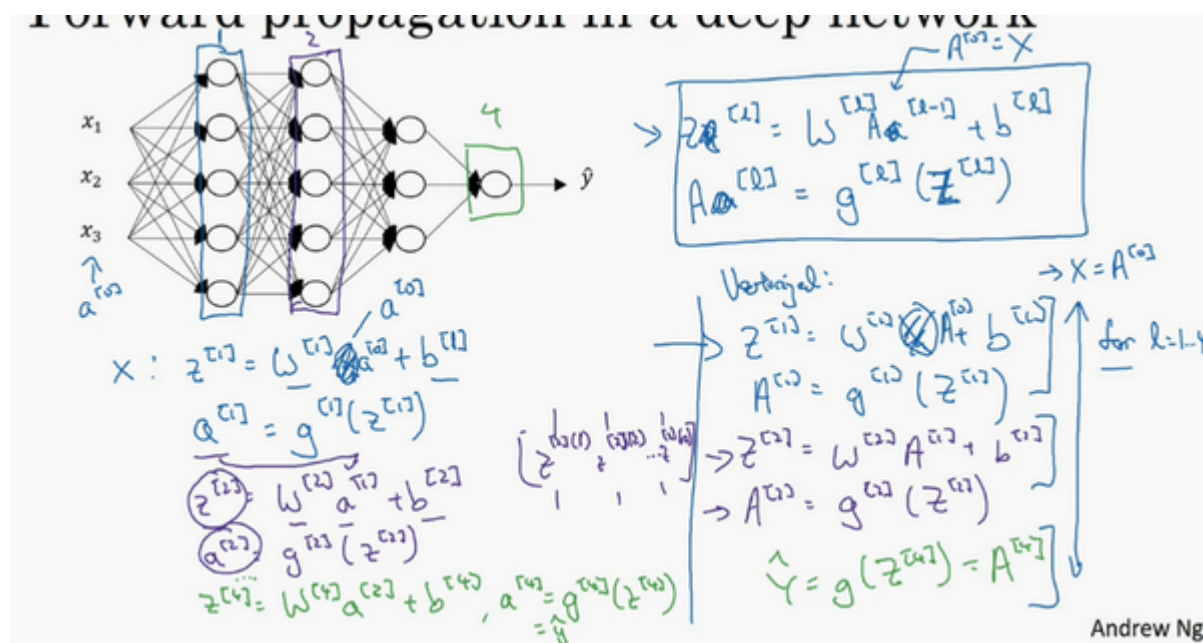 Forward propagation in a deep network
1
2
4
x₁
x₂
x₃
ŷ
a^[0]
a^[0]
X : z^[1] = W^[1] a^[0] + b^[1]
a^[1] = g^[1](z^[1])
z^[2] = W^[2] a^[1] + b^[2]
a^[2] = g^[2](z^[2])
...
z^[4] = W^[4] a^[2] + b^[4], a^[4] = g^[4](z^[4])
= ŷ
A^[0] = X
Z^[l] = W^[l] A^[l-1] + b^[l]
A^[l] = g^[l](Z^[l])
→ X = A^[0]
→ Z^[1] = W^[1] A^[0] + b^[1]
A^[1] = g^[1](Z^[1])
for l=1..4
[z^[2](1) z^[2](2) ... z^[2](m)]
→ Z^[2] = W^[2] A^[1] + b^[2]
→ A^[2] = g^[2](Z^[2])
Ŷ = g(Z^[4]) = A^[4]
Andrew Ng